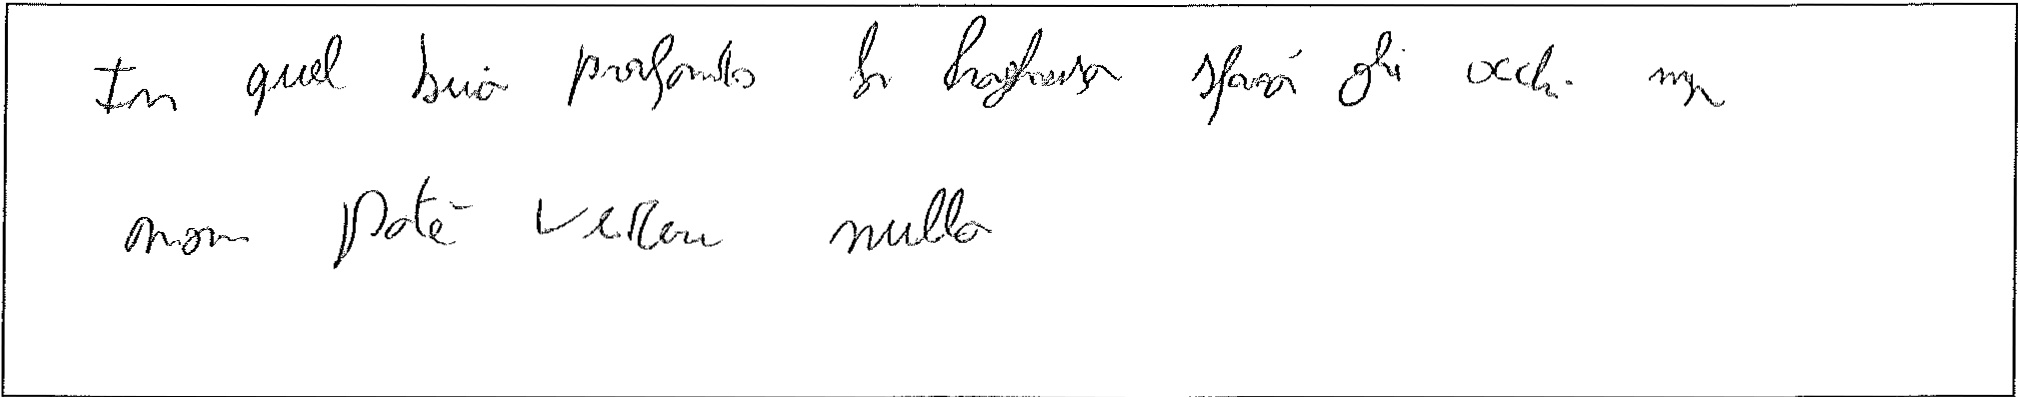 In quel buio profondo la sbarrò gli occhi ma
non poté vedere nulla